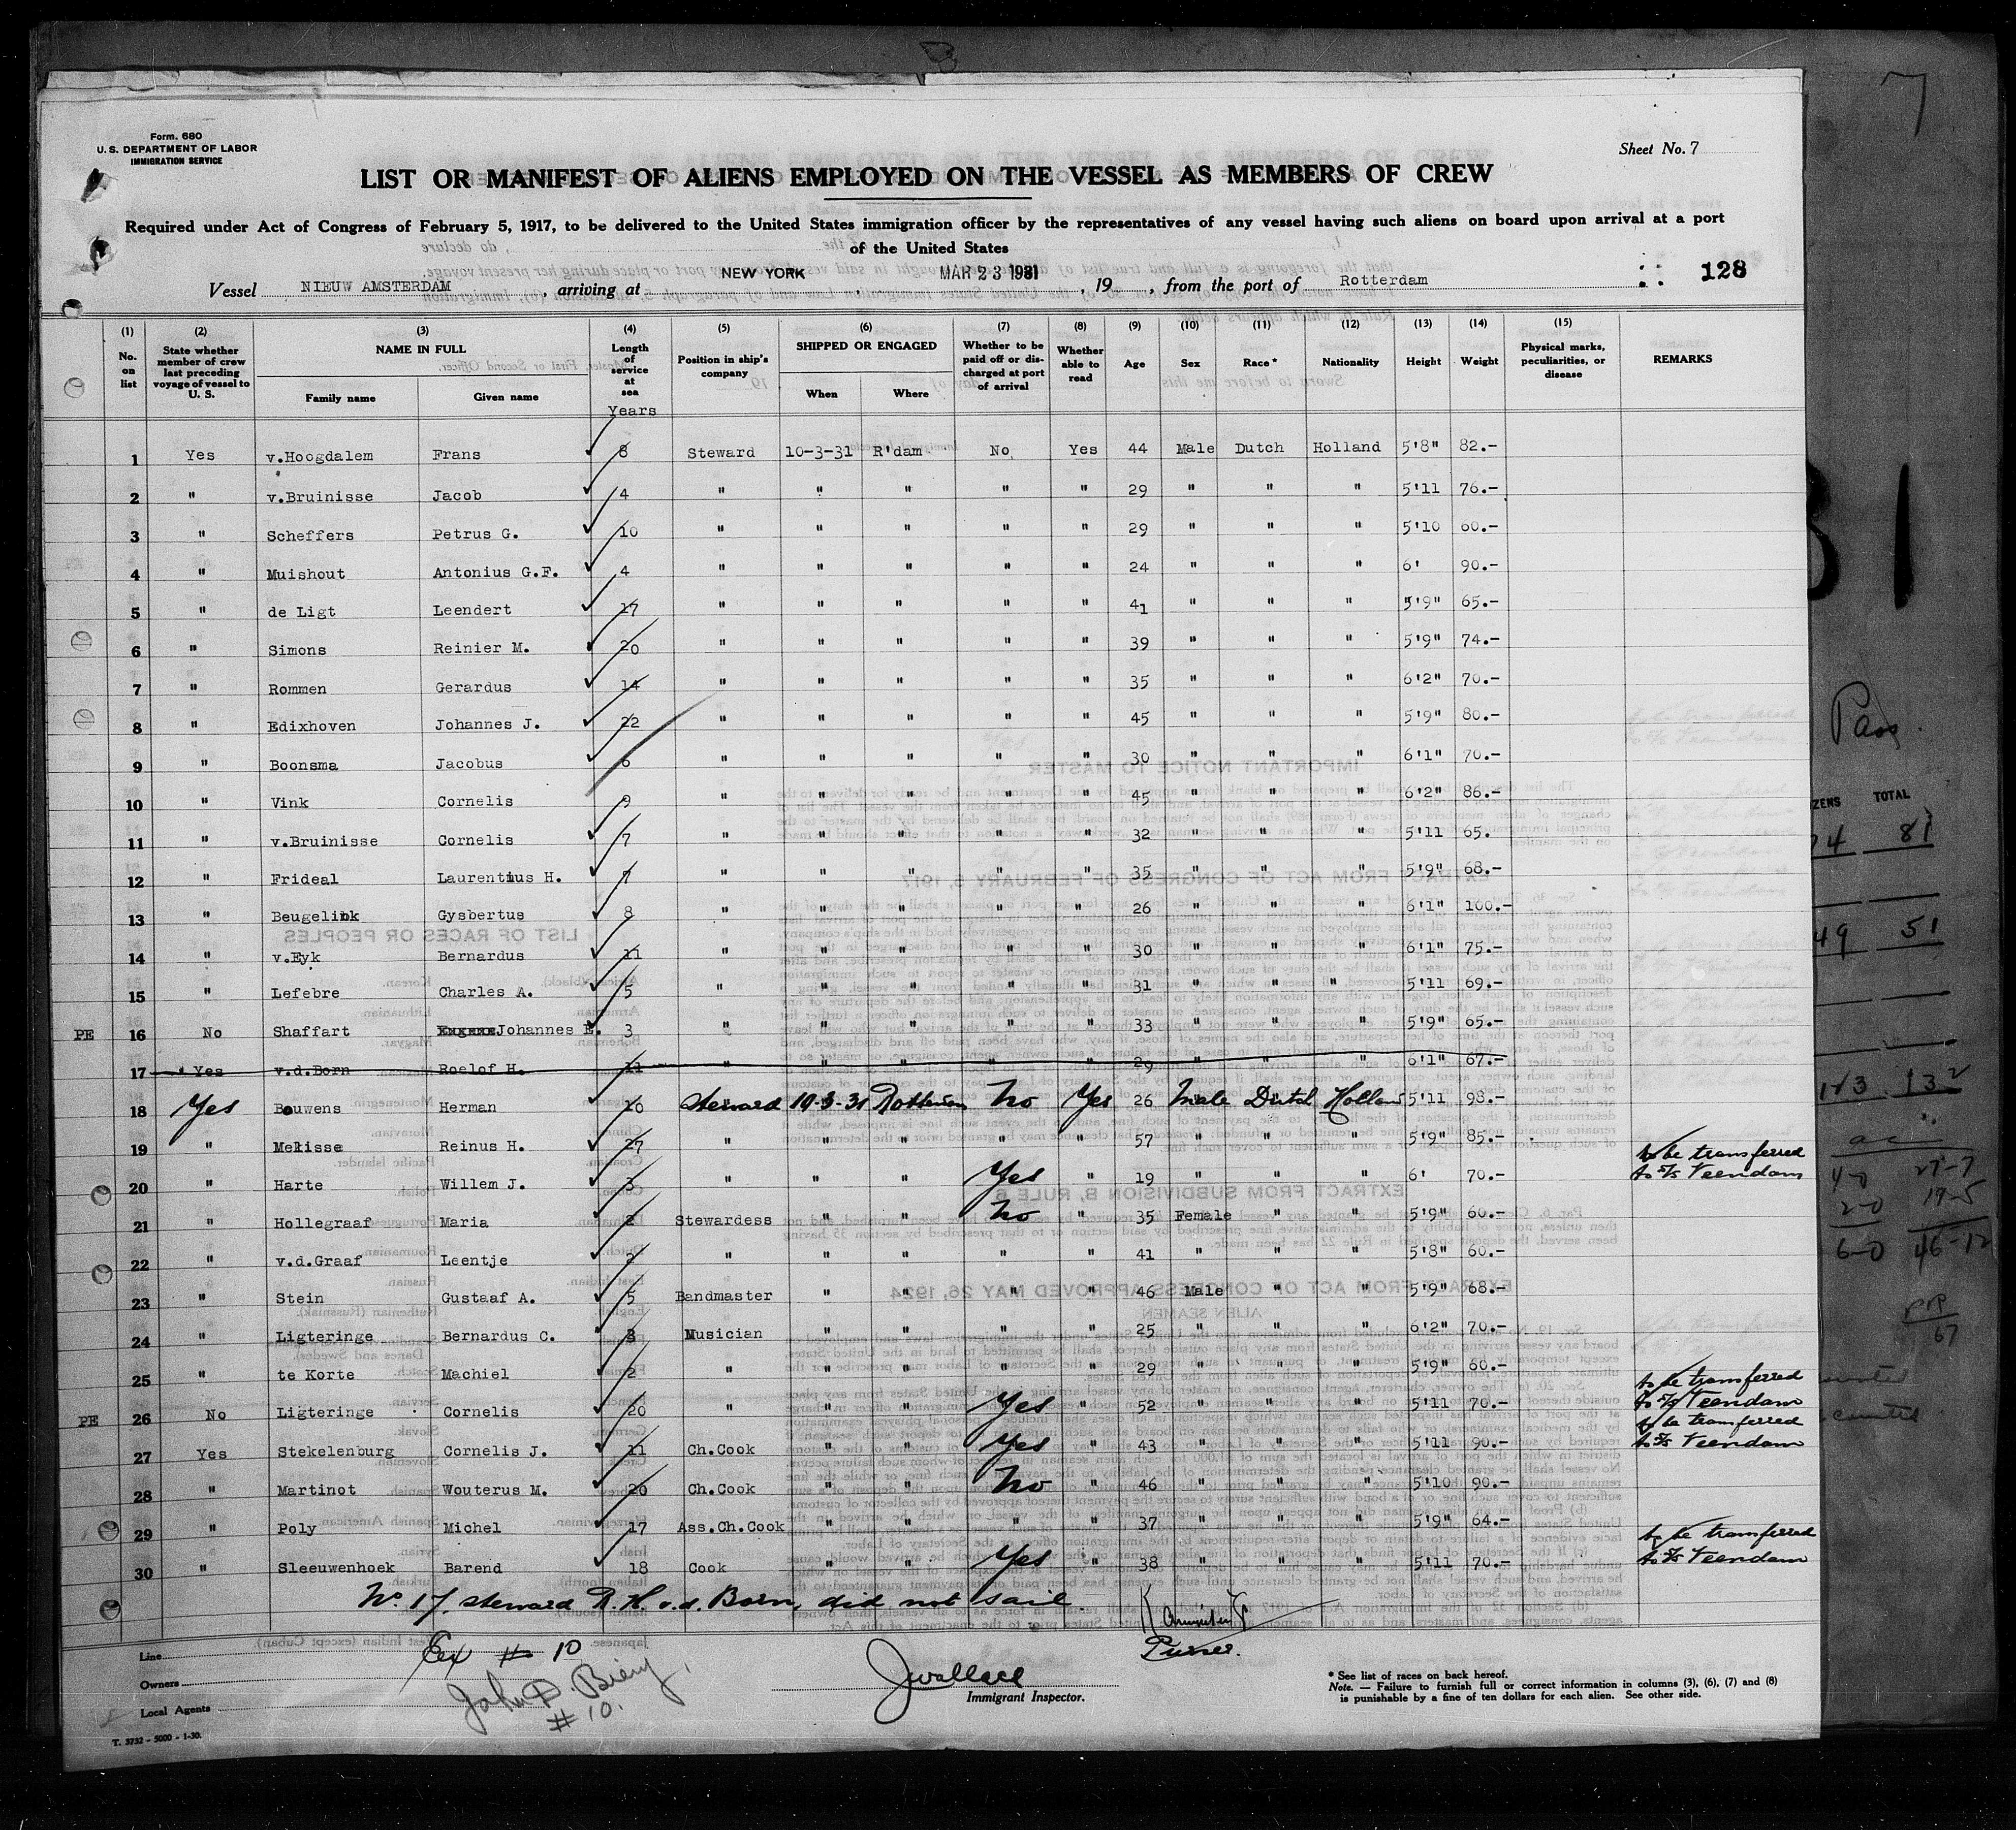 Form. 680
U.S. DEPARTMENT OF LABOR
IMMIGRATION SERVICE
Sheet No. 7
LIST OR MANIFEST OF ALIENS EMPLOYED ON THE VESSEL AS MEMBERS OF CREW
Required under Act of Congress of February 5, 1917, to be delivered to the United States immigration officer by the representatives of any vessel having such aliens on board upon arrival at a port
of the United States
Vessel NIEUW AMSTERDAM, arriving at NEW YORK, MAR 23 1931, 19, from the port of Rotterdam 128
(1) (2) (3) (4) (5) (6) (7) (8) (9) (10) (11) (12) (13) (14) (15)
No. on list State whether member of crew last preceding voyage of vessel to U. S. NAME IN FULL Family name Given name Length of service at sea Years Position in ship's company SHIPPED OR ENGAGED When Where Whether to be paid off or discharged at port of arrival Whether able to read Age Sex Race* Nationality Height Weight Physical marks, peculiarities, or disease REMARKS
1 Yes v.Hoogdalem Frans 8 Steward 10-3-31 R'dam No Yes 44 Male Dutch Holland 5'8" 82.-
2 " v.Bruinisse Jacob 4 " " " " " 29 " " " 5'11 76.-
3 " Scheffers Petrus G. 10 " " " " " 29 " " " 5'10 60.-
4 " Muishout Antonius G.F. 4 " " " " " 24 " " " 6' 90.-
5 " de Ligt Leendert 17 " " " " " 41 " " " 5'9" 65.-
6 " Simons Reinier M. 20 " " " " " 39 " " " 5'9" 74.-
7 " Rommen Gerardus 14 " " " " " 35 " " " 6'2" 70.-
8 " Edixhoven Johannes J. 22 " " " " " 45 " " " 5'9" 80.-
9 " Boonsma Jacobus 6 " " " " " 30 " " " 6'1" 70.-
10 " Vink Cornelis 9 " " " " " 45 " " " 6'2" 86.-
11 " v.Bruinisse Cornelis 7 " " " " " 32 " " " 5'11 65.
12 " Frideal Laurentius H. 7 " " " " " 35 " " " 5'9" 68.-
13 " Beugelink Gysbertus 8 " " " " " 26 " " " 6'1" 100.-
14 " v.Eyk Bernardus 11 " " " " " 30 " " " 6'1" 75.-
15 " Lefebre Charles A. 5 " " " " " 31 " " " 5'11 69.-
PE 16 No Shaffart Johannes E. 3 " " " " " 33 " " " 5'9" 65.-
17 " Yes v.d.Born Roelof H. 11 " " " " " 29 " " " 6'1" 67.-
18 Yes Bouwens Herman 10 Steward 10-3-31 Rotterdam No Yes 26 Male Dutch Holland 5'11 98.-
19 " Mekisse Reinus H. 27 " " " " " 57 " " " 5'9" 85.-
20 " Harte Willem J. 3 " " " Yes " 19 " " " 6' 70.- to be transferred to S/S Veendam
21 " Hollegraaf Maria 2 Stewardess " " No " 35 Female " " 5'9" 60.-
22 " v.d.Graaf Leentje 2 " " " " " 41 " " " 5'8" 60.-
23 " Stein Gustaaf A. 5 Bandmaster " " " " 46 Male " " 5'9" 68.-
24 " Ligteringe Bernardus C. 3 Musician " " " " 25 " " " 6'2" 70.-
25 " te Korte Machiel 2 " " " " " 29 " " " 5'9" 60.-
PE 26 No Ligteringe Cornelis 20 " " " Yes " 52 " " " 5'11 70.- to be transferred to S/S Veendam
27 Yes Stekelenburg Cornelis J. 11 Ch.Cook " " Yes " 43 " " " 5'11 90.- to be transferred to S/S Veendam
28 " Martinot Wouterus M. 20 Ch.Cook " " No " 46 " " " 5'10 90.-
29 " Poly Michel 17 Ass.Ch.Cook " " " " 37 " " " 5'9" 64.-
30 " Sleeuwenhoek Barend 18 Cook " " Yes " 38 " " " 5'11 70.- to be transferred to S/S Veendam
No. 17, steward R. H. v.d. Born, did not sail.
Purser.
Line
Owners
Local Agents
Ex # 10
John D. Biery
# 10.
JWallace
Immigrant Inspector.
* See list of races on back hereof.
Note. — Failure to furnish full or correct information in columns (3), (6), (7) and (8)
is punishable by a fine of ten dollars for each alien. See other side.
T. 3732 - 5000 - 1-30.
Pass.
ZENS TOTAL
81
49 51
123 132
4-0 27-7
2-0 19-5
6-0 46-12
67